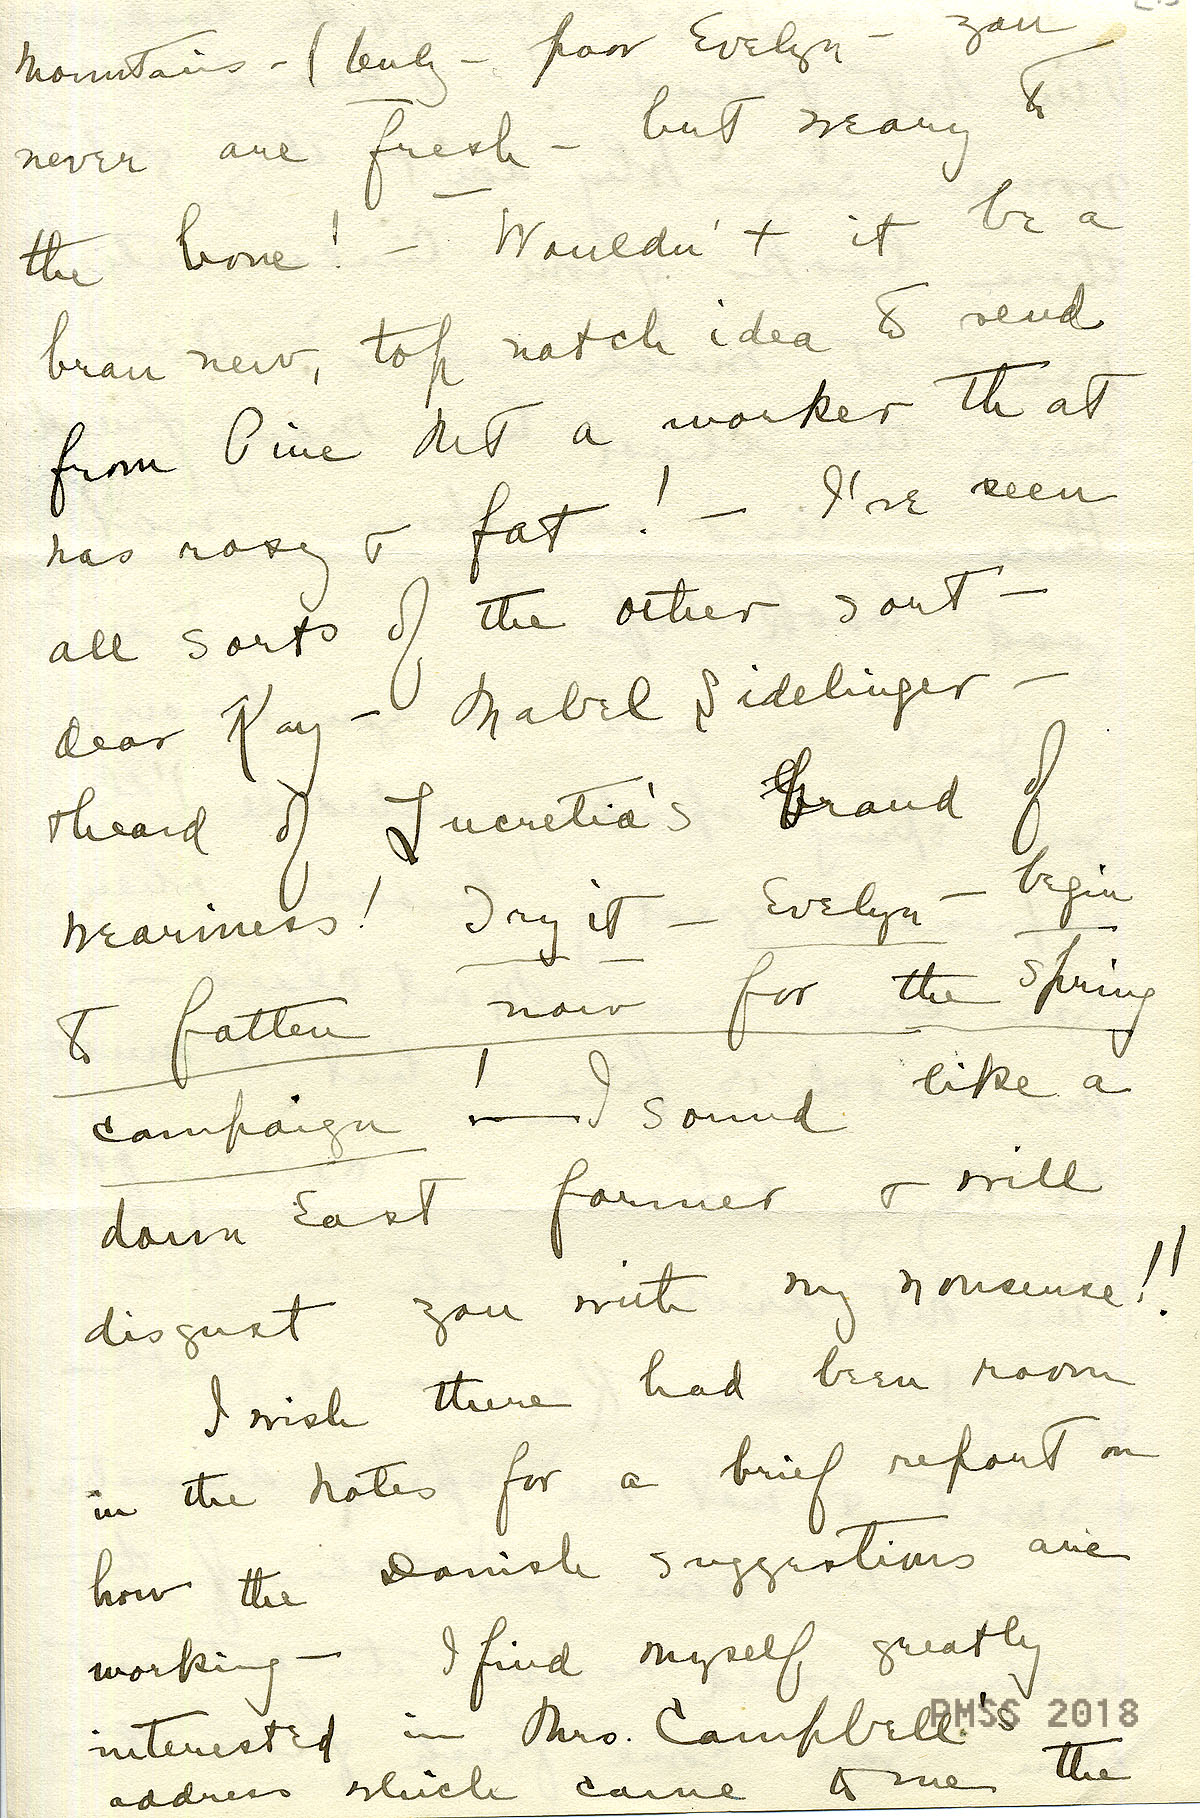 mountains - (truly - poor Evelyn - you
never are fresh - but weary to
the bone! - Wouldn't it be a
bran new, top notch idea to send
from Pine Mt a worker that
was rosy & fat! - I've seen
all sorts of the other sort -
dear Kay - Mabel Sidelinger -
& heard of Lucretia's brand of
weariness! Try it - Evelyn - begin
to fatten now for the spring
campaign! - I sound like a
down East farmer & will
disgust you with my nonsense!!
I wish there had been room
in the Notes for a brief report on
how the Danish suggestions are
working - I find myself greatly
interested in Mrs. Campbell's
address which came to me the
PMSS 2018